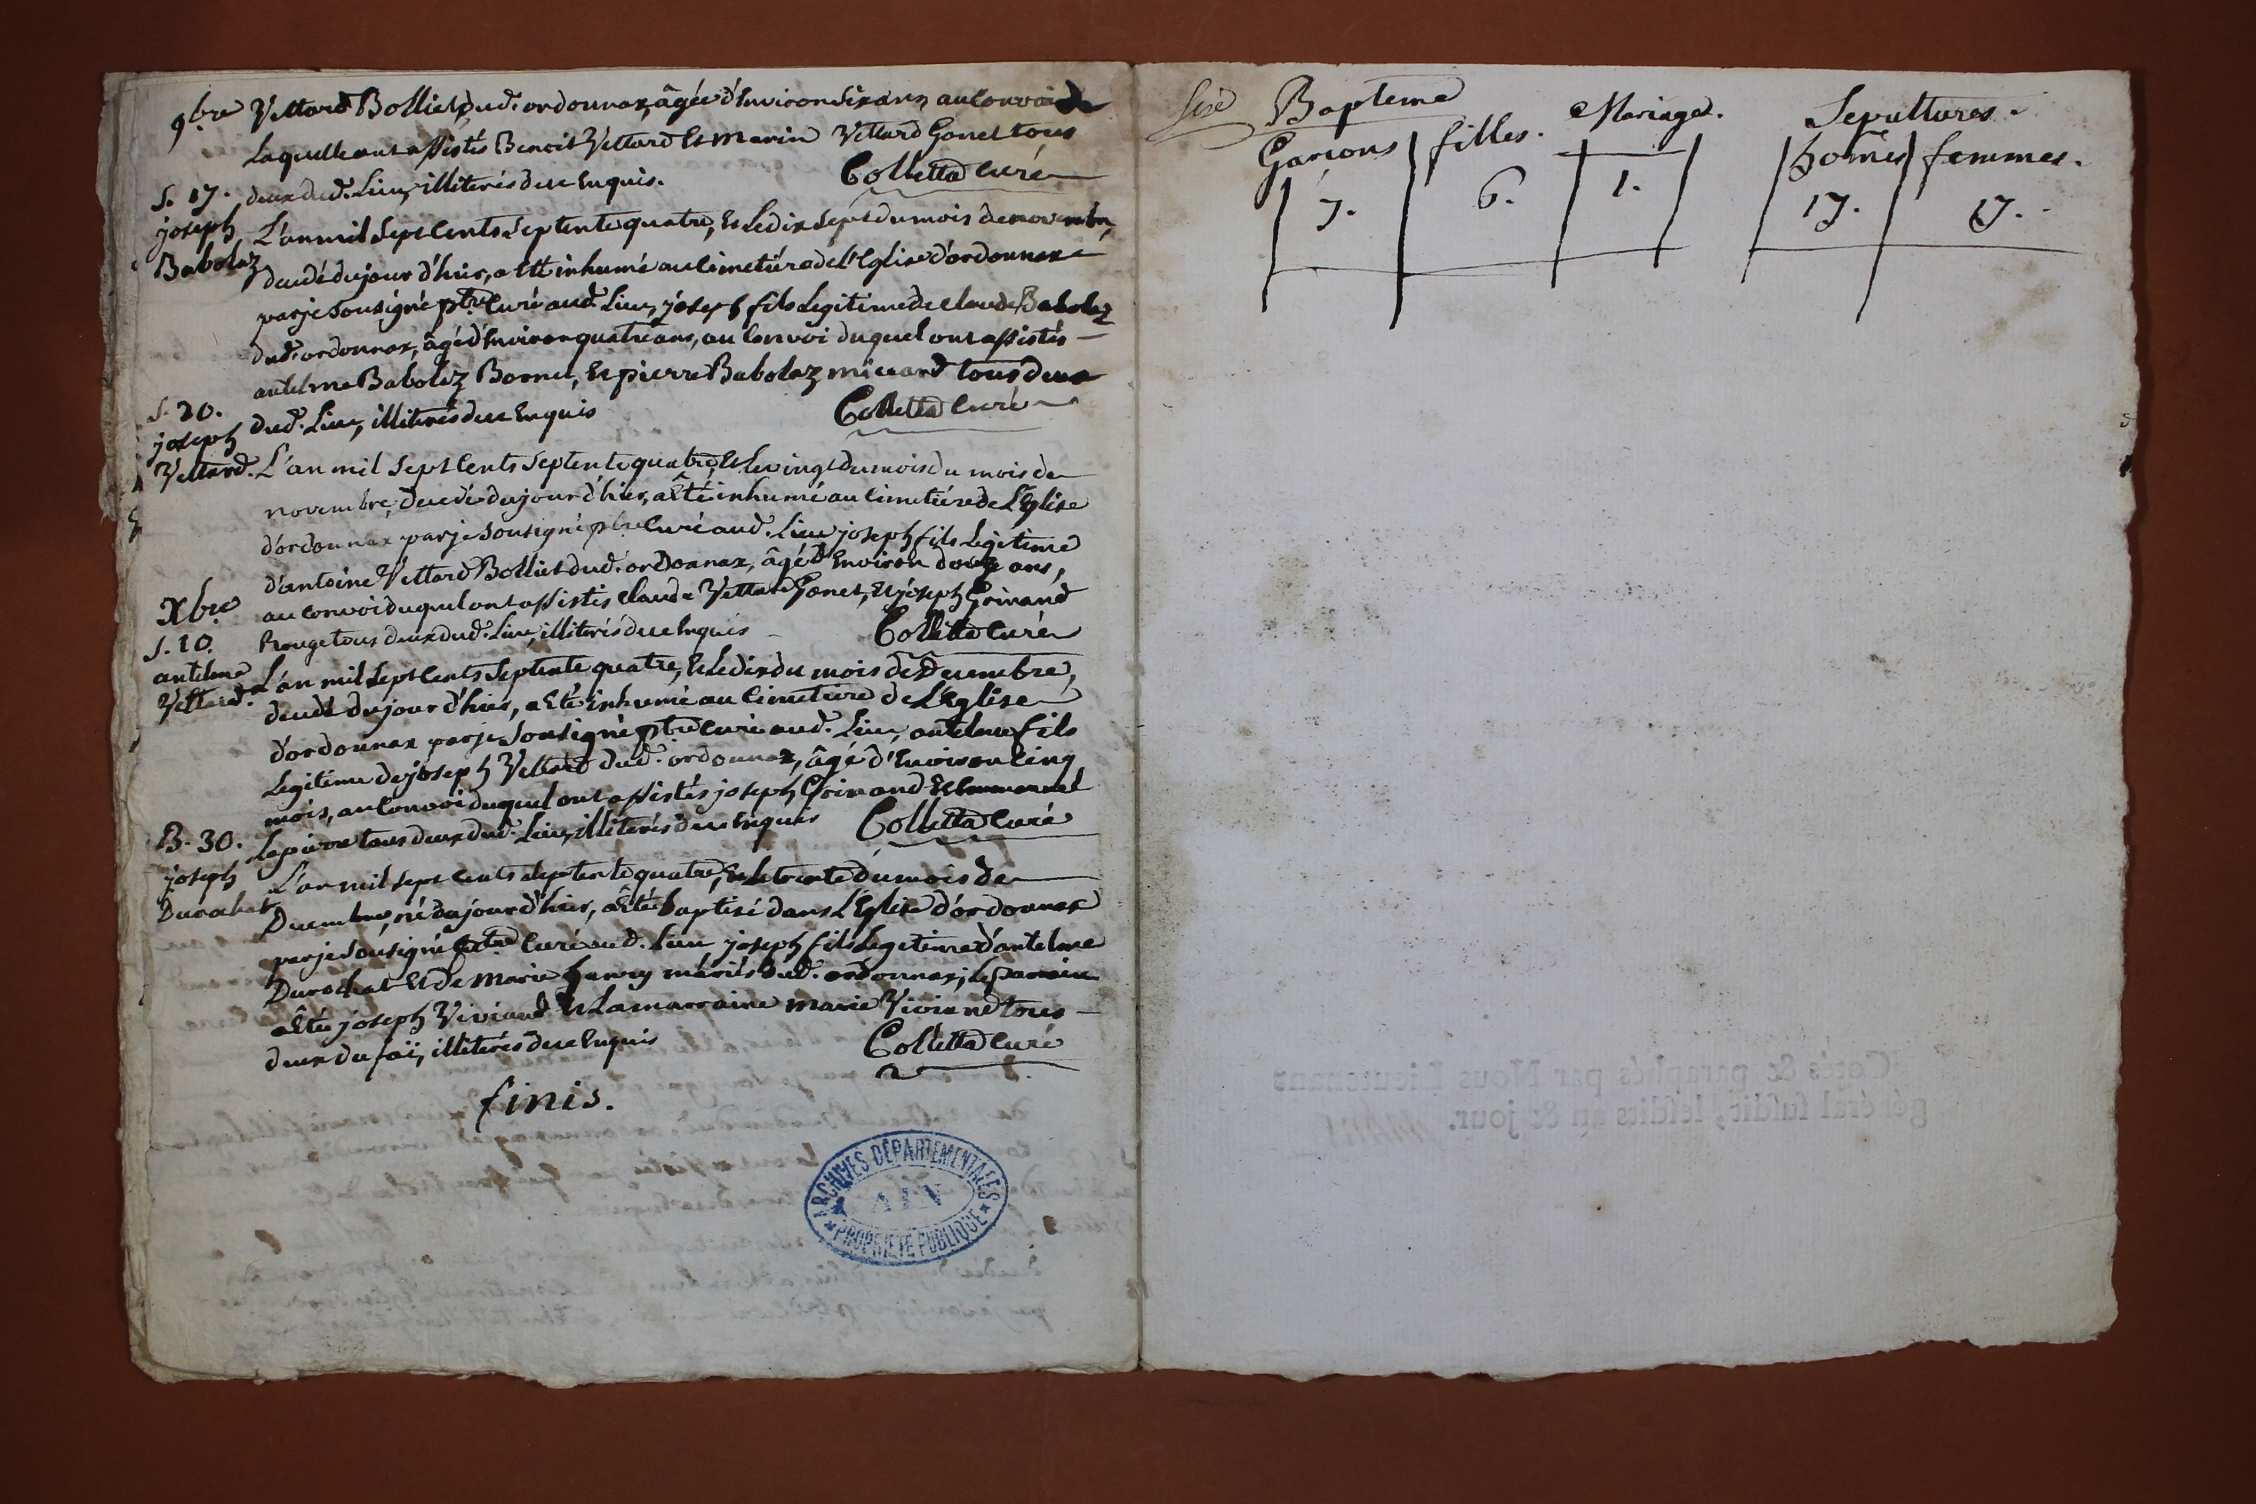 9bre Vettard Bolliet dud. ordonnax, âgée d'Environ six ans, au Convoi de
Laquelle ont assistés Benoit Vettard Et marin Vettard Gonet tous
deux dud. Lieu, illiterés de ce Enquis. Colletta Curé
S. 17.
joseph
Babolaz
L'an mil Sept Cents Septente quatre, Et le dix Sept du mois de novembre,
decedé du jour d'hier, a Eté inhumé au Cimetiére de l'Eglise d'ordonnax
par je Sousigné ptre Curé aud. Lieu, joseph fils Legitime de claude Babolaz
dud. ordonnax, âgé d'Environ quatre ans, au Convoi duquel ont assistés
antelme Babolaz Bornet, Et pierre Babolaz miciand tous deux
dud. Lieu, illiterés de ce Enquis Colletta Curé
S. 20.
joseph
Vettard.
L'an mil Sept Cents Septente quatre, Et le vingt du mois du mois de
novembre, decedé du jour d'hier, a Eté inhumé au Cimetiére de L'Eglise
d'ordonnax par je Sousigné ptre Curé aud. Lieu joseph fils Legitime
d'antoine Vettard Bolliet dud. ordonnax, âgé d'Environ douze ans,
au Convoi duquel ont assistés claude Vettard Gonet, Et joseph Grinand
Rouge tous deux dud. Lieu, illiterés de ce Enquis Colletta Curé
Xbre
S. 10.
antelme
Vettard.
L'an mil Sept Cents Septente quatre, Et le dix du mois de Decembre,
decedé du jour d'hier, a Eté inhumé au Cimetiére de L'Eglise
d'ordonnax par je Sousigné ptre Curé aud. Lieu, antelme fils
Legitime de joseph Vettard dud. ordonnax, âgé d'Environ Cinq
mois, au Convoi duquel ont assistés joseph Grinand Et Emmanuel
Lapierre tous deux dud. Lieu, illiterés de ce Enquis Colletta Curé
B. 30.
joseph
Durochat
L'an mil Sept Cents Septente quatre, Et le trente du mois de
Decembre, né du jour d'hier, a Eté baptisé dans L'Eglise d'ordonnax
par je Sousigné ptre Curé aud. Lieu joseph fils Legitime d'antelme
Durochat Et de marie hanry mariés dud. ordonnax; le parrain
a Eté joseph Viviand Et La marraine marie Viviand tous
deux du faï, illiterés de ce Enquis Colletta Curé
finis.
ARCHIVES DÉPARTEMENTALES
AIN
PROPRIÉTÉ PUBLIQUE
Bapteme Mariages. Sepultures.
Garcons filles. homes femmes.
7. 6. 1. 17. 17.
Cotés & paraphés par Nous Lieutenant
général susdit, lesdits an & jour.